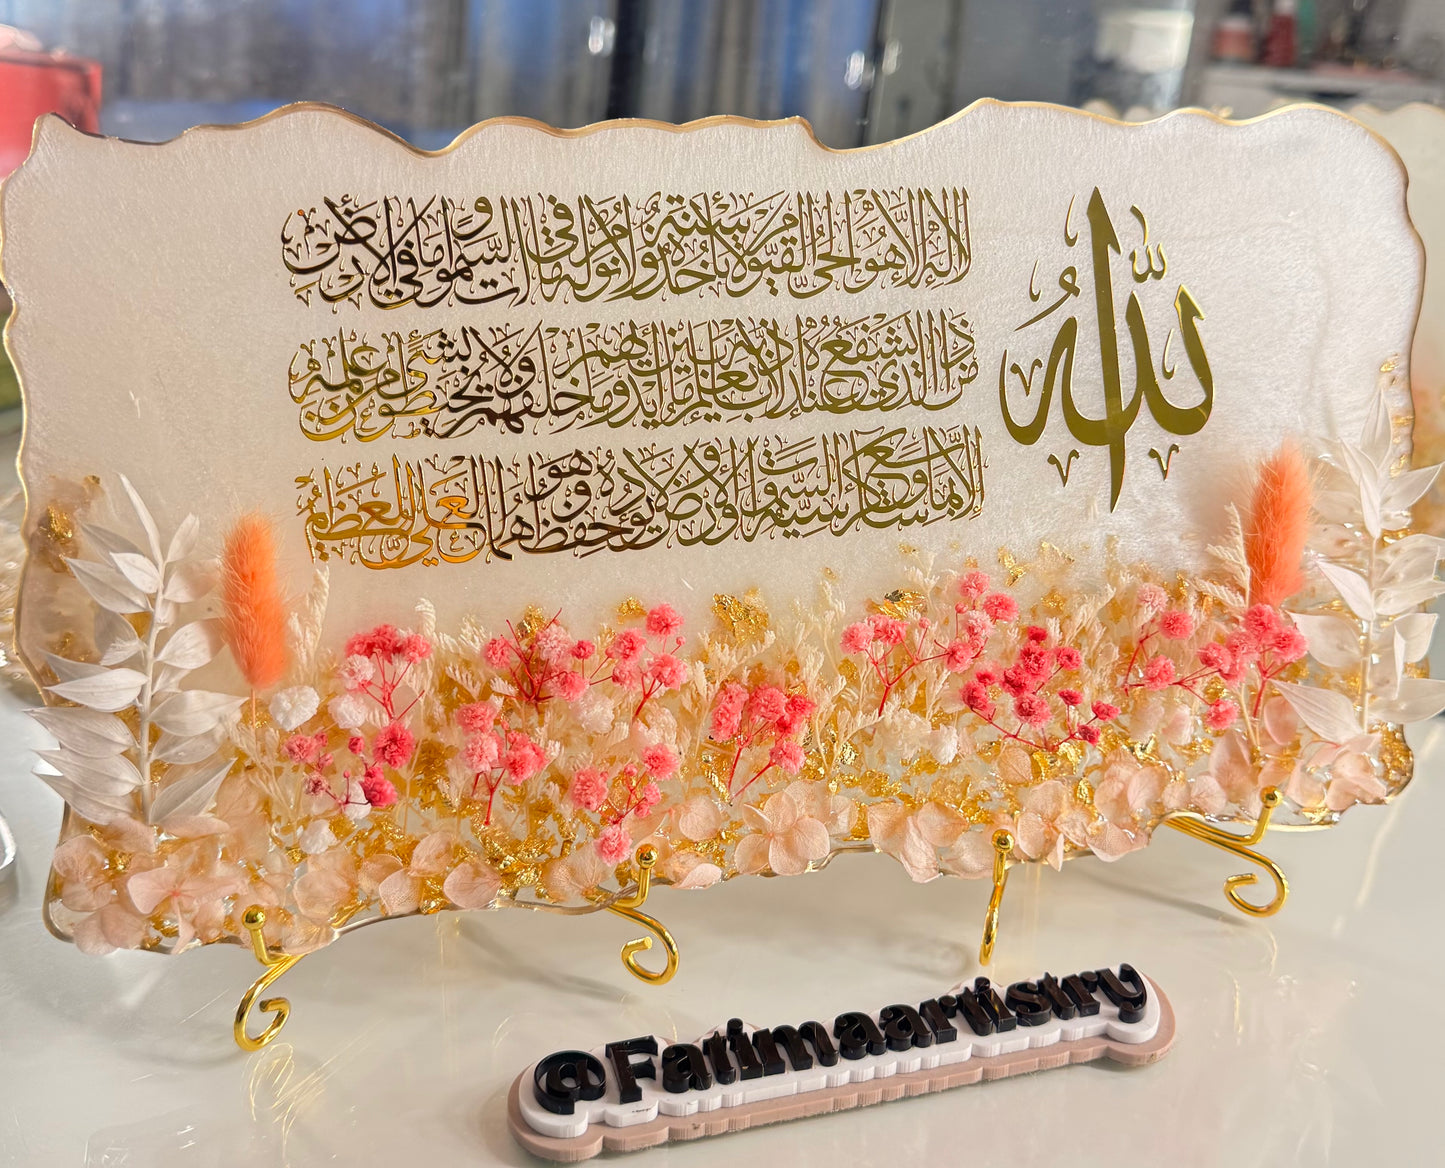 الله
لا إله إلا هو الحي القيوم لا تأخذه سنة ولا نوم له ما في السموات وما في الأرض
من ذا الذي يشفع عنده إلا بإذنه يعلم ما بين أيديهم وما خلفهم ولا يحيطون بشيء من علمه
إلا بما شاء وسع كرسيه السموات والأرض ولا يؤده حفظهما وهو العلي العظيم
@Fatimaartistry